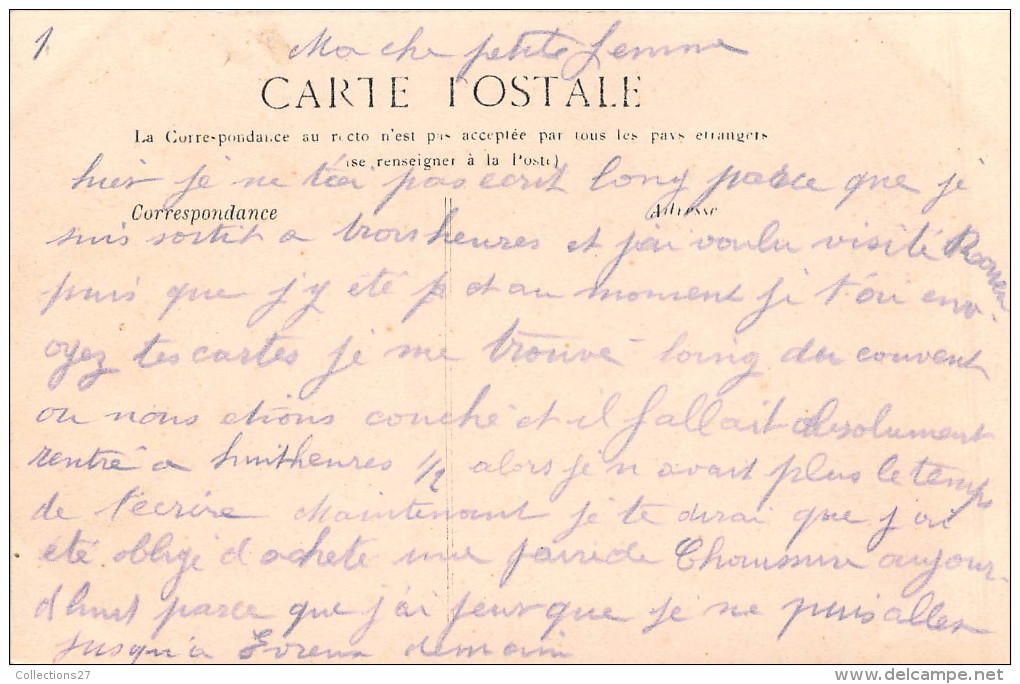 1
Ma che petite femme
CARTE POSTALE
La Correspondance au recto n'est pas acceptée par tous les pays etrangers
(se renseigner à la Poste)
hier je ne tai pas ecrit long parce que je
Correspondance Adresse
suis sortit a trois heures et j'ai voulu visité Rouen
puis que j'y été et au moment je t'ai env-
oyez tes cartes je me trouvé loing du couvent
ou nous etions couché et il fallait absolument
rentré a huit heures 1/2 alors je n avait plus le temps
de t'écrire Maintenant je te dirai que j'ai
été obligé d acheté une paire de Chaussure aujour-
d'huit parce que j'ai peur que je ne puis aller
jusqu'a Evreux demain
Collections27
www.delcampe.net